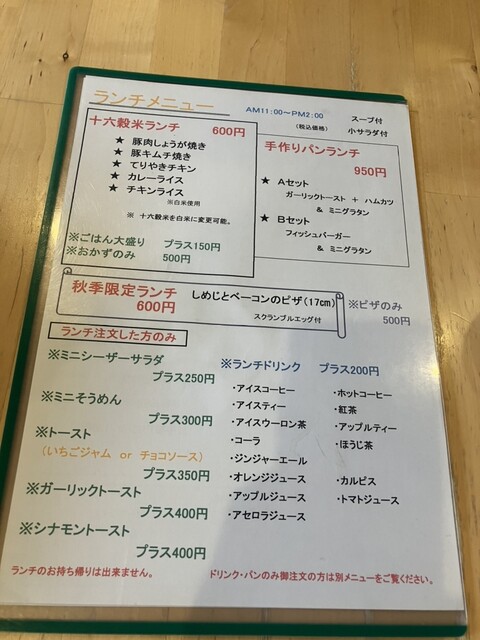 ランチメニュー
AM11:00～PM2:00
(税込価格)
スープ付
小サラダ付
十六穀米ランチ 600円
★ 豚肉しょうが焼き
★ 豚キムチ焼き
★ てりやきチキン
★ カレーライス
★ チキンライス
※白米使用
※ 十六穀米を白米に変更可能。
※ごはん大盛り プラス150円
※おかずのみ 500円
手作りパンランチ
950円
★ Aセット
ガーリックトースト + ハムカツ
& ミニグラタン
★ Bセット
フィッシュバーガー
& ミニグラタン
秋季限定ランチ
600円
しめじとベーコンのピザ(17cm)
スクランブルエッグ付
※ピザのみ
500円
ランチ注文した方のみ
※ミニシーザーサラダ
プラス250円
※ミニそうめん
プラス300円
※トースト
(いちごジャム or チョコソース)
プラス350円
※ガーリックトースト
プラス400円
※シナモントースト
プラス400円
※ランチドリンク プラス200円
・アイスコーヒー
・アイスティー
・アイスウーロン茶
・コーラ
・ジンジャーエール
・オレンジジュース
・アップルジュース
・アセロラジュース
・ホットコーヒー
・紅茶
・アップルティー
・ほうじ茶
・カルピス
・トマトジュース
ランチのお持ち帰りは出来ません。
ドリンク・パンのみ御注文の方は別メニューをご覧ください。